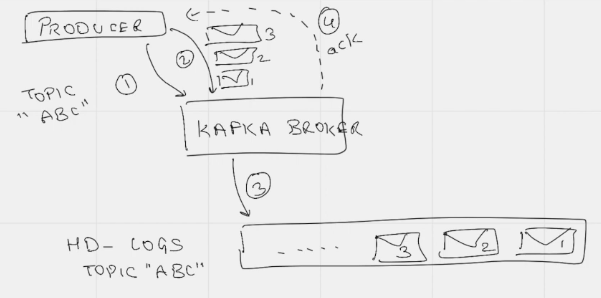 PRODUCER
4
3
ack
2
2
1
1
TOPIC
"ABC"
KAFKA BROKER
3
HD- LOGS
TOPIC "ABC"
.........
3
2
1